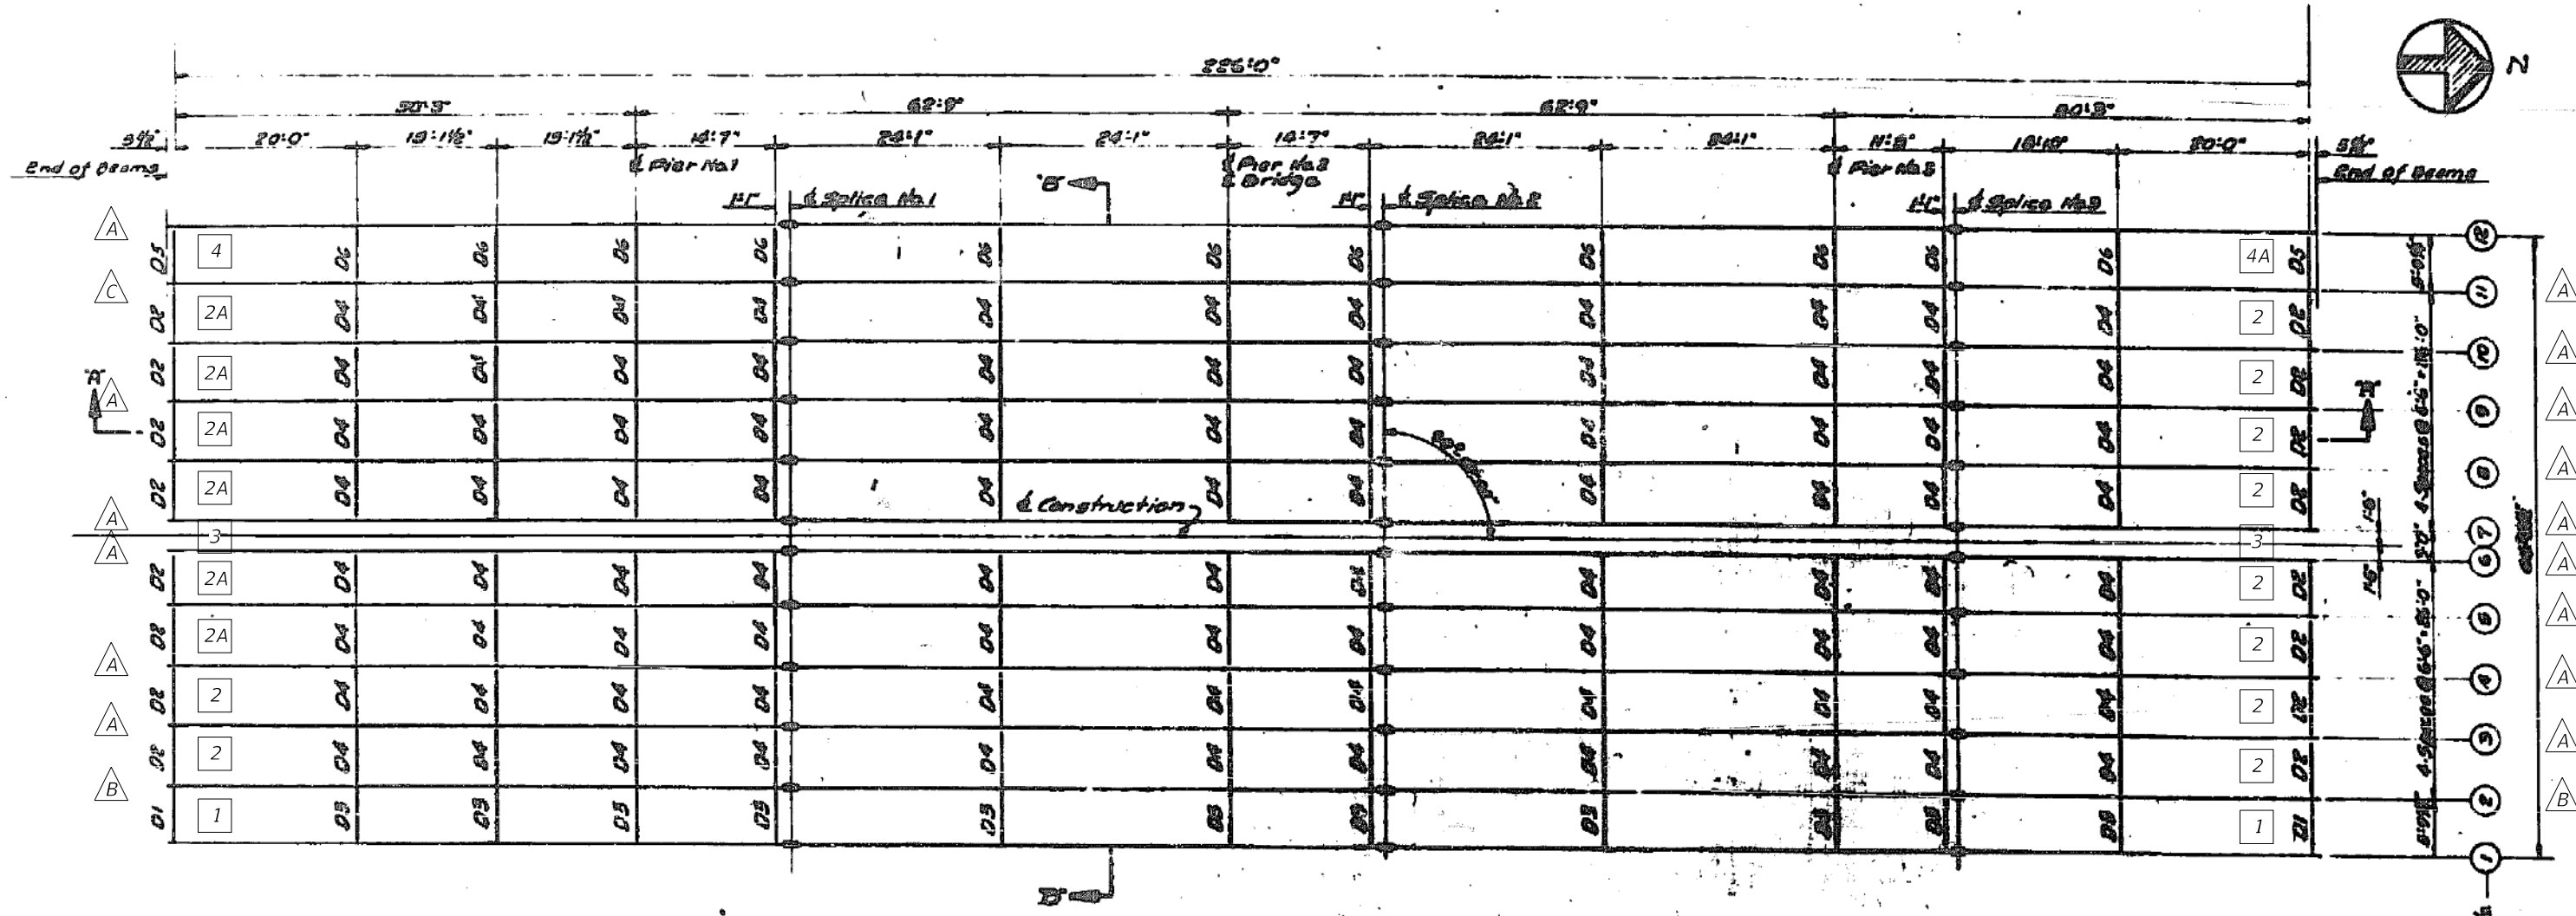 N
226'-0"
50'-3" 62'-9" 62'-9" 50'-3"
5½" 20'-0" 15'-1½" 15'-1½" 14'-7" 24'-1" 24'-1" 14'-7" 24'-1" 24'-1" 20'-0" 5½"
End of Beams ₵ Pier No.1 ₵ Pier No.2 ₵ Pier No.3 End of Beams
₵ Bridge
"B"
1'-1" ₵ Splice No.1 1'-1" ₵ Splice No.2 1'-1" ₵ Splice No.3
A 12
D5 4 D6 D6 D6 D6 D6 D6 D6 D6 D6 D6 D6 4A D5
C 11 A
D2 2A D4 D4 D4 D4 D4 D4 D4 D4 D4 D4 D4 2 D2
10 A
D2 2A D4 D4 D4 D4 D4 D4 D4 D4 D4 D4 D4 2 D2
"A" A 9 A
D2 2A D4 D4 D4 D4 D4 D4 D4 D4 D4 D4 D4 2 D2
8 A
D2 2A D4 D4 D4 D4 D4 D4 D4 D4 D4 D4 D4 2 D2
₵ Construction
A 7 A
3 3
A 6 A
D2 2A D4 D4 D4 D4 D4 D4 D4 D4 D4 D4 D4 2 D2
5 A
D2 2A D4 D4 D4 D4 D4 D4 D4 D4 D4 D4 D4 2 D2
A 4 A
D2 2 D4 D4 D4 D4 D4 D4 D4 D4 D4 D4 D4 2 D2
A 3 A
D2 2 D4 D4 D4 D4 D4 D4 D4 D4 D4 D4 D4 2 D2
B 2 B
D1 1 D3 D3 D3 D3 D3 D3 D3 D3 D3 D3 D3 1 D1
1
4 Spaces @ 6'-6" = 26'-0" 3'-0" 4 Spaces @ 6'-6" = 26'-0"
1'-6" 1'-6"
"B"